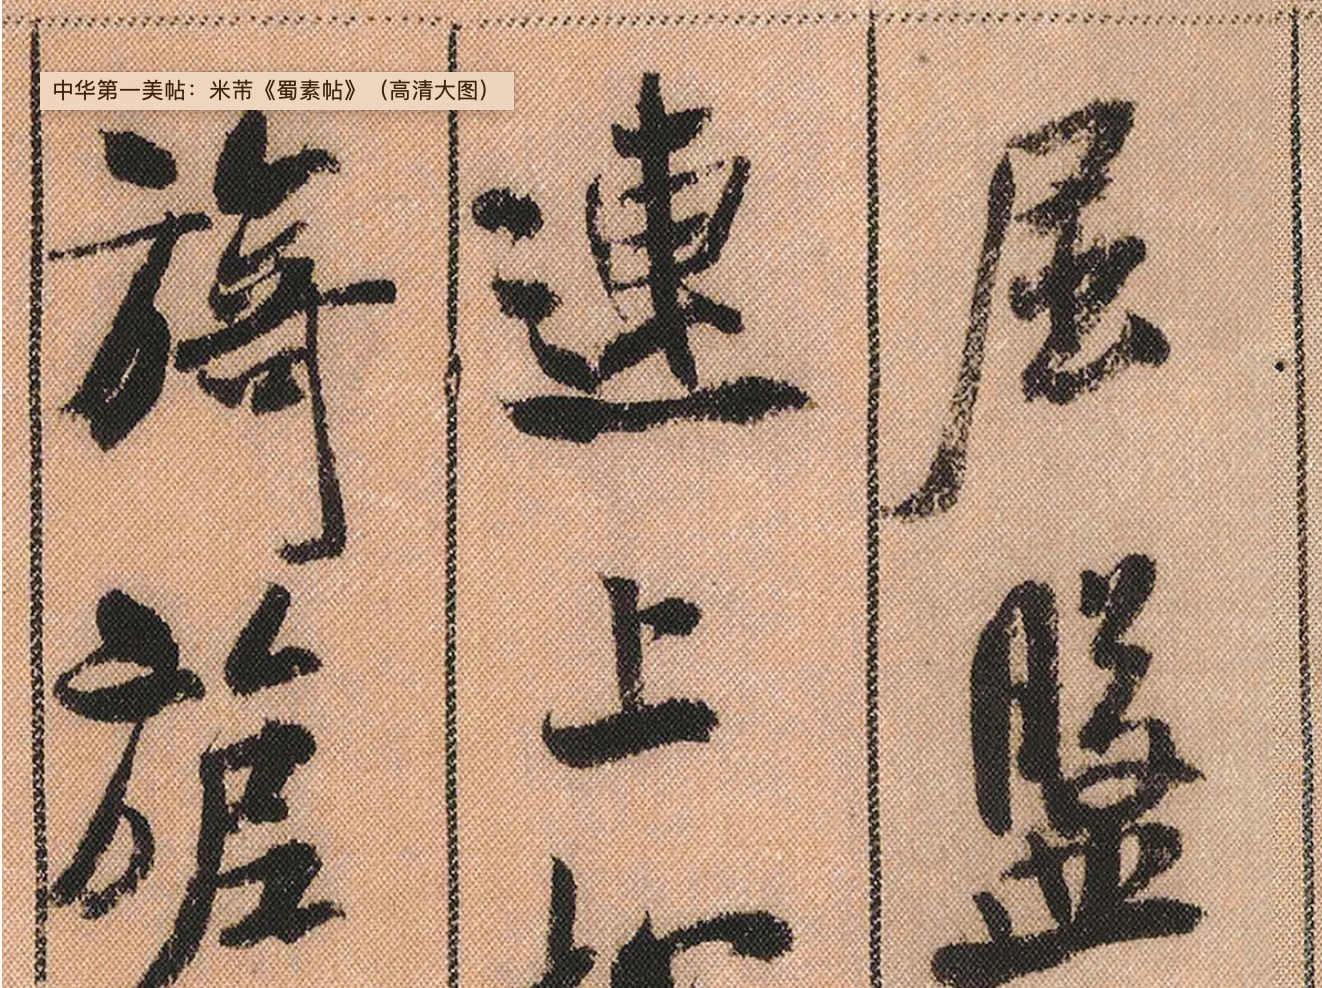 中华第一美帖：米芾《蜀素帖》（高清大图）
屈盤
連上
旖旎